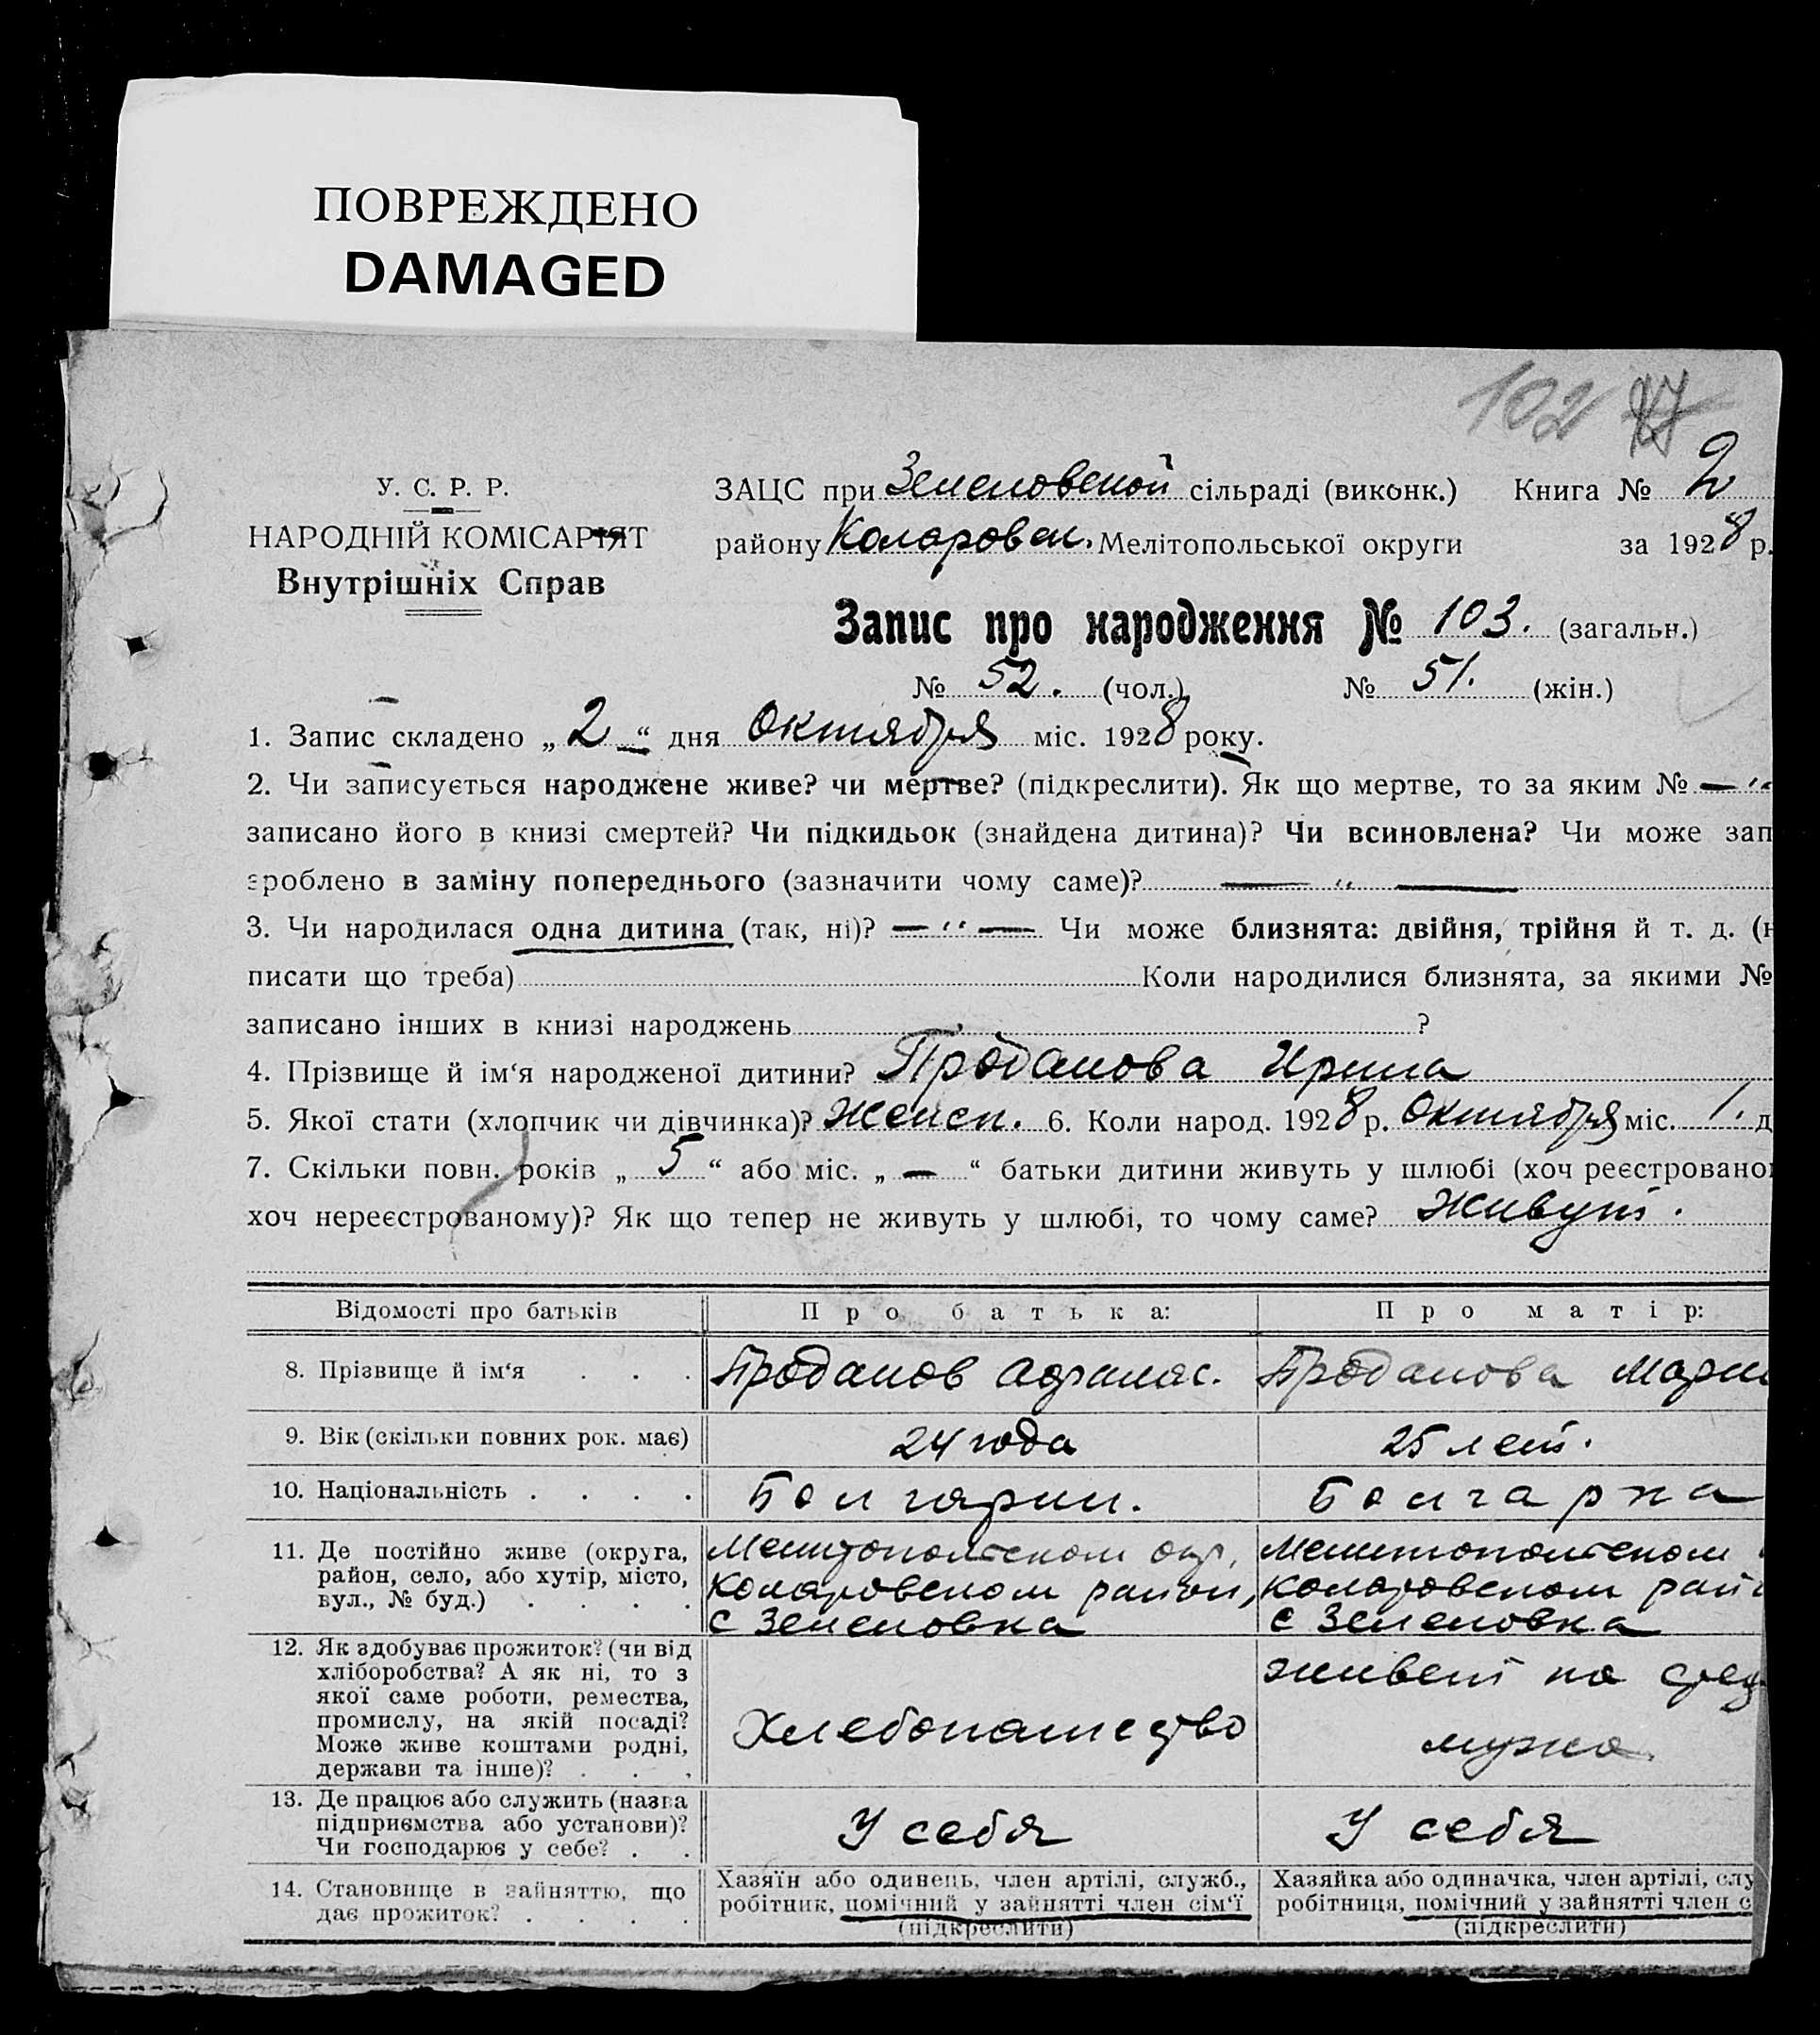 ПОВРЕЖДЕНО
DAMAGED
102
У. С. Р. Р.
НАРОДНІЙ КОМІСАРІЯТ
Внутрішніх Справ
ЗАЦС при Зеленовской сільраді (виконк.) Книга № 2
району Коларовск. Мелітопольської округи за 1928 р.
Запис про народження № 103. (загальн.)
№ 52. (чол.) № 51. (жін.)
1. Запис складено „ 2 “ дня Октября міс. 1928 року.
2. Чи записується народжене живе? чи мертве? (підкреслити). Як що мертве, то за яким № — "
записано його в книзі смертей? Чи підкидьок (знайдена дитина)? Чи всиновлена? Чи може зап
зроблено в заміну попереднього (зазначити чому саме)? — " —
3. Чи народилася одна дитина (так, ні)? — " — Чи може близнята: двійня, трійня й т. д. (н
писати що треба) Коли народилися близнята, за якими №
записано інших в книзі народжень ?
4. Прізвище й ім‘я народженої дитини? Проданова Ирина
5. Якої стати (хлопчик чи дівчинка)? Женск. 6. Коли народ. 1928 р. Октября міс. 1. д
7. Скільки повн. років „ 5 “ або міс. „ — “ батьки дитини живуть у шлюбі (хоч реєстровано
хоч нереєстрованому)? Як що тепер не живуть у шлюбі, то чому саме? Живут.
Відомості про батьків Про батька: Про матір:
8. Прізвище й ім‘я . . . Проданов Афанас. Проданова Мари
9. Вік (скільки повних рок. має) 24 года 25 лет.
10. Національність . . . . Болгарин. Болгарка
11. Де постійно живе (округа,
район, село, або хутір, місто,
вул., № буд.) . . . .
Мелитопольском окр,
Коларовском район,
с Зеленовка
Мелитопольском
Коларовском рай
с Зеленовка
12. Як здобуває прожиток? (чи від
хліборобства? А як ні, то з
якої саме роботи, ремества,
промислу, на якій посаді?
Може живе коштами родні,
держави та інше)? . . .
Хлебопашество
живет на сред
мужа.
13. Де працює або служить (назва
підприємства або установи)?
Чи господарює у себе? . .
У себя
У себя
14. Становище в зайняттю, що
дає прожиток? . . . .
Хазяїн або одинець, член артілі, служб.,
робітник, помічний у зайнятті член сім‘ї
(підкреслити)
Хазяйка або одиначка, член артілі, слу
робітниця, помічний у зайнятті член с
(підкреслити)